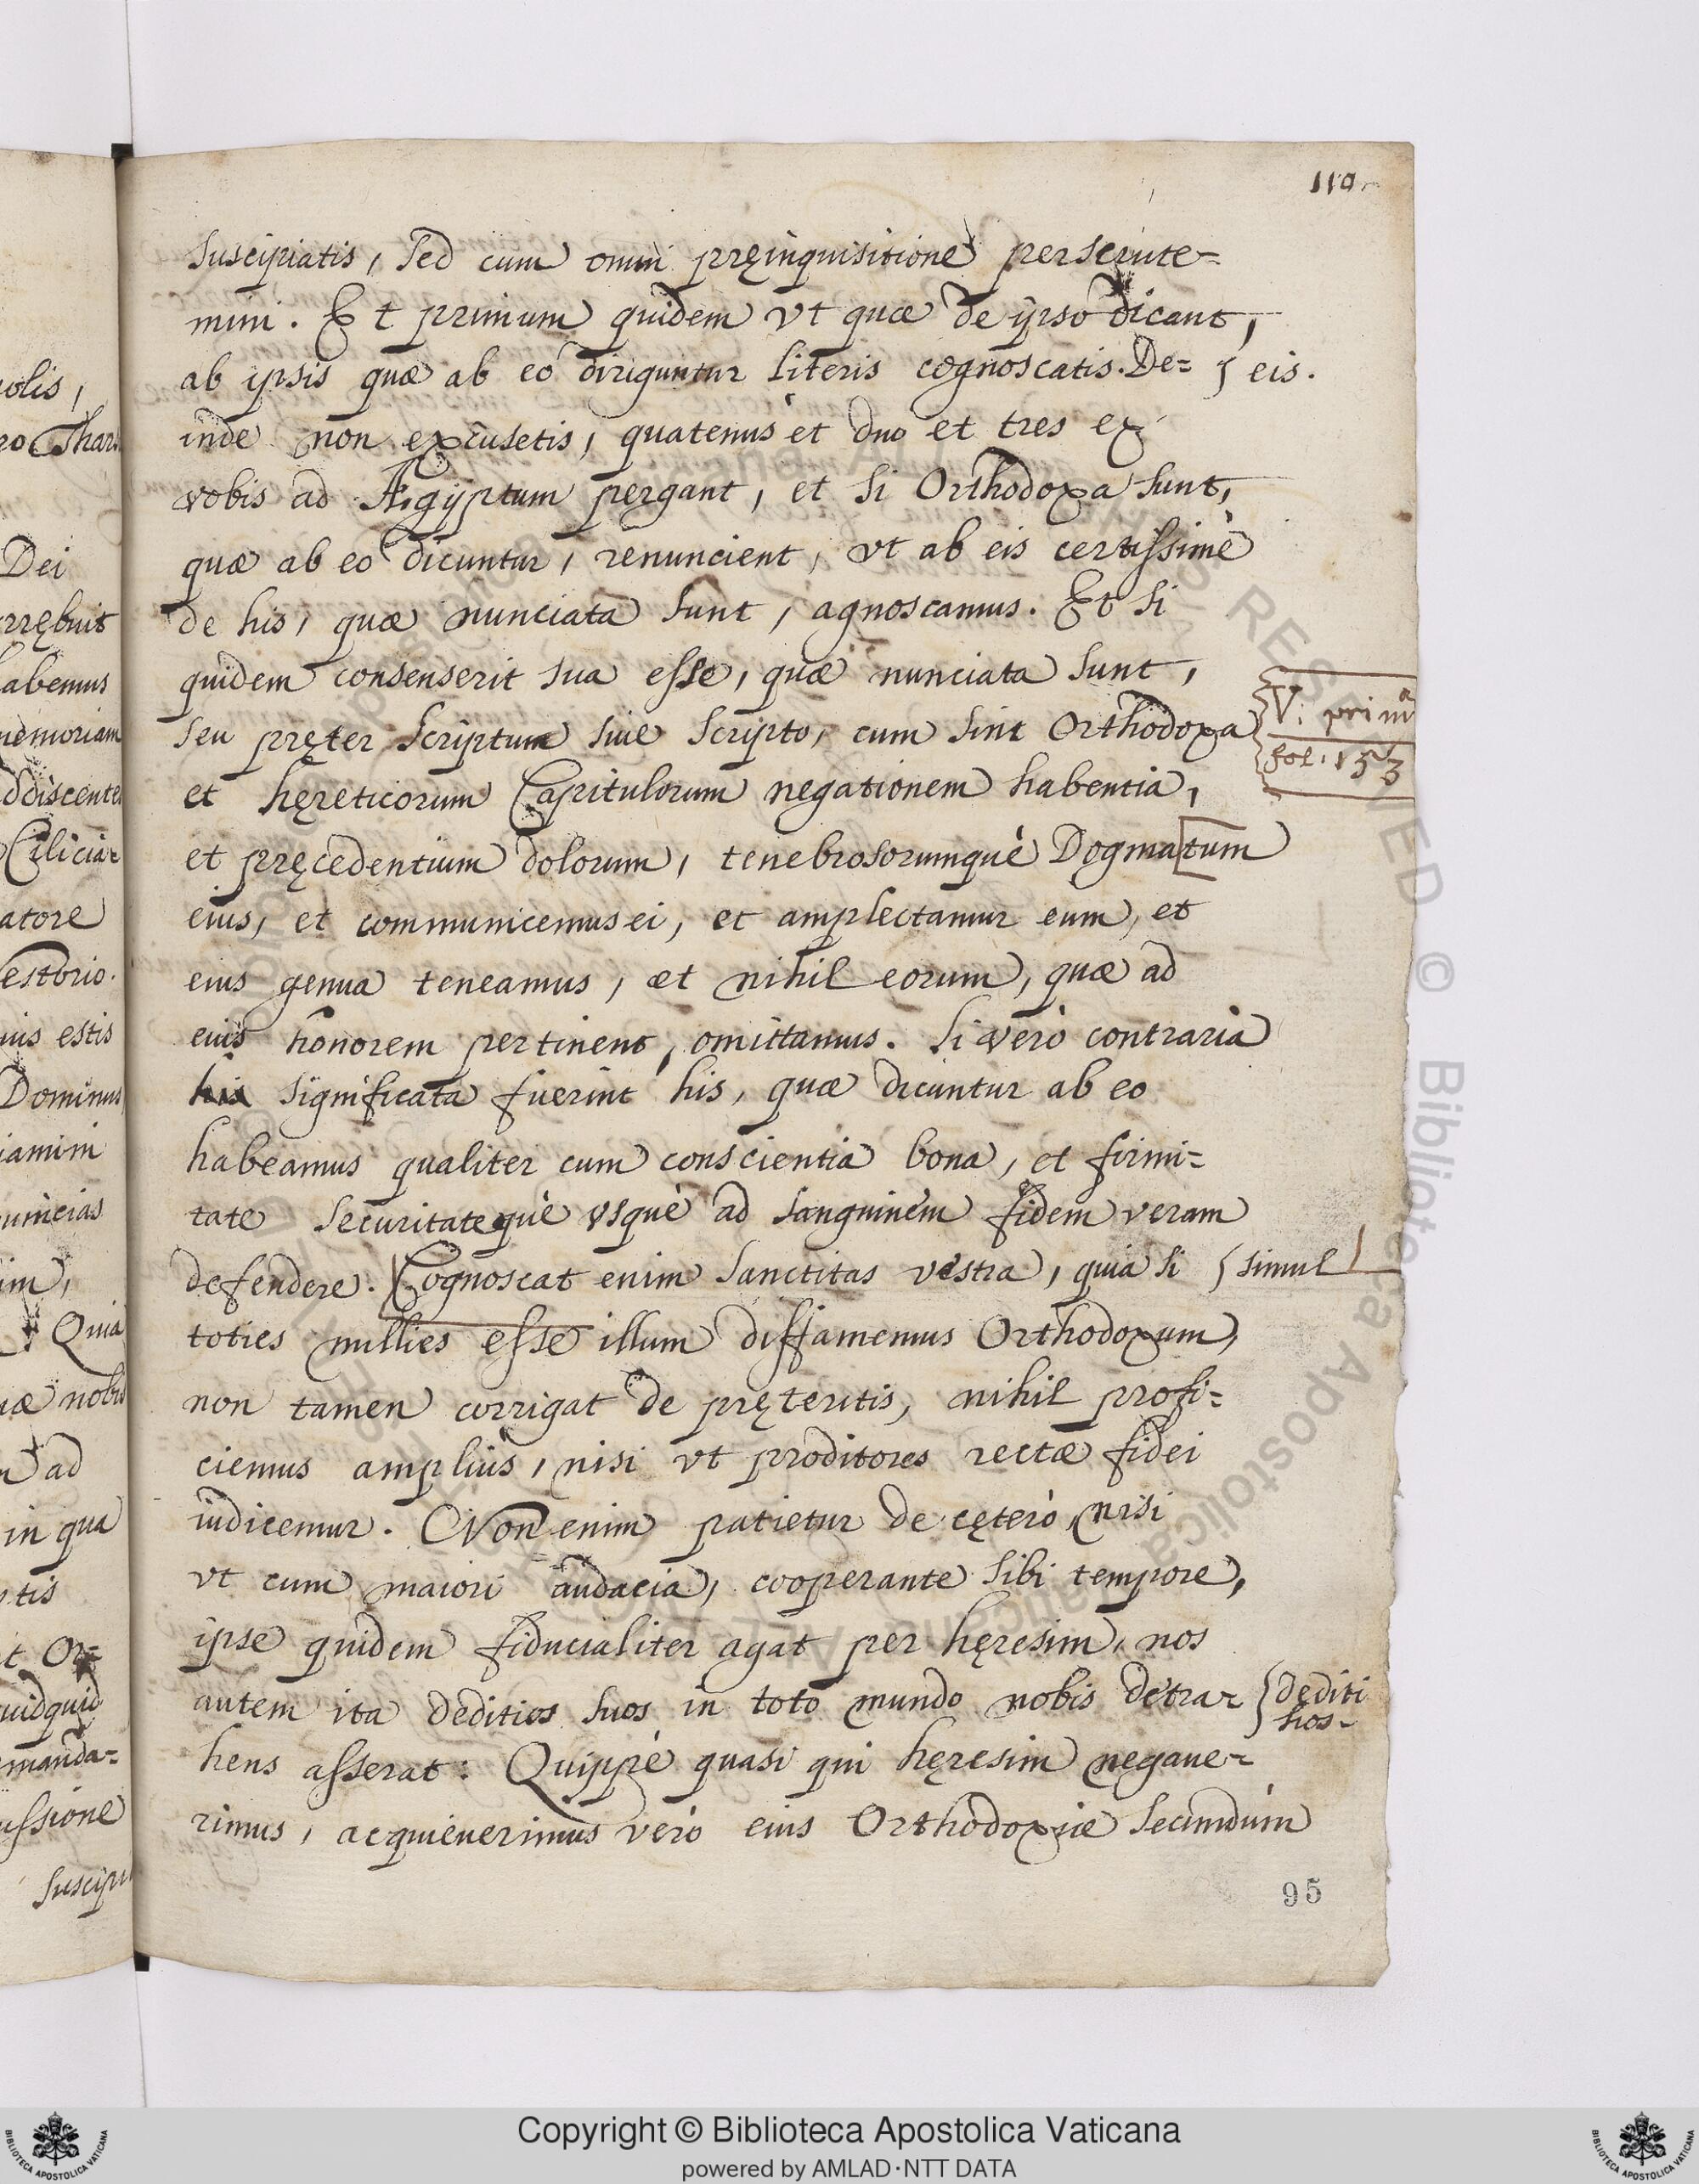 119
suscipiatis, sed cum omni pręinquisitione perscrute=
mini. Et primum quidem vt quæ de ipso dicant,
ab ipsis quæ ab eo diriguntur literis cognoscatis. De= { eis.
inde non excusetis, quatenus et duo et tres ex
vobis ad Ægÿptum pergant, et si Orthodoxa sunt,
quæ ab eo dicuntur, renuncient, vt ab eis certissimè
de his, quæ nunciata sunt, agnoscamus. Et si
quidem consenserit sua esse, quæ nunciata sunt,
seu pręter scriptum siue scripto, cum sint Orthodoxa
V. prim.ᵃ
fol. 153
et hęreticorum Capitulorum negationem habentia,
et pręcedentium dolorum, tenebrosorumquè Dogma[tum
eius, et communicemus ei, et amplectamur eum, et
eius genua teneamus, et nihil eorum, quæ ad
eius honorem pertinent, omittamus. Si verò contraria
his significata fuerint his, quæ dicuntur ab eo
habeamus qualiter cum conscientia bona, et firmi=
tate securitatequè vsquè ad sanguinem fidem veram
defendere. [Cognoscat enim Sanctitas vestra, quia si { simul
toties millies esse illum diffamemus Orthodoxum,
non tamen corrigat de pręteritis, nihil profi=
ciemus ampliùs, nisi vt proditores rectæ fidei
iudicemur. Non enim patietur de cęterò, nisi
vt cum maiori audacia, cooperante sibi tempore,
ipse quidem fiducialiter agat per hęresim, nos
autem ita deditios suos in toto mundo nobis detra= { dediti
hos-
hens asserat: Quippè quasi qui hęresim negaue=
rimus, acquieuerimus verò eius Orthodoxiæ secundùm
95
olis,
Dei
rrębuit
abemus
memoriam
ddiscente
Ciliciæ
atore
estorio.
uis estis
Dominus
iamini
uincias
im,
Quia
uæ nobis
m ad
in qua
ptis
t Or=
uidquid
manda=
ussione
suscipi
Copyright © Biblioteca Apostolica Vaticana
powered by AMLAD·NTT DATA